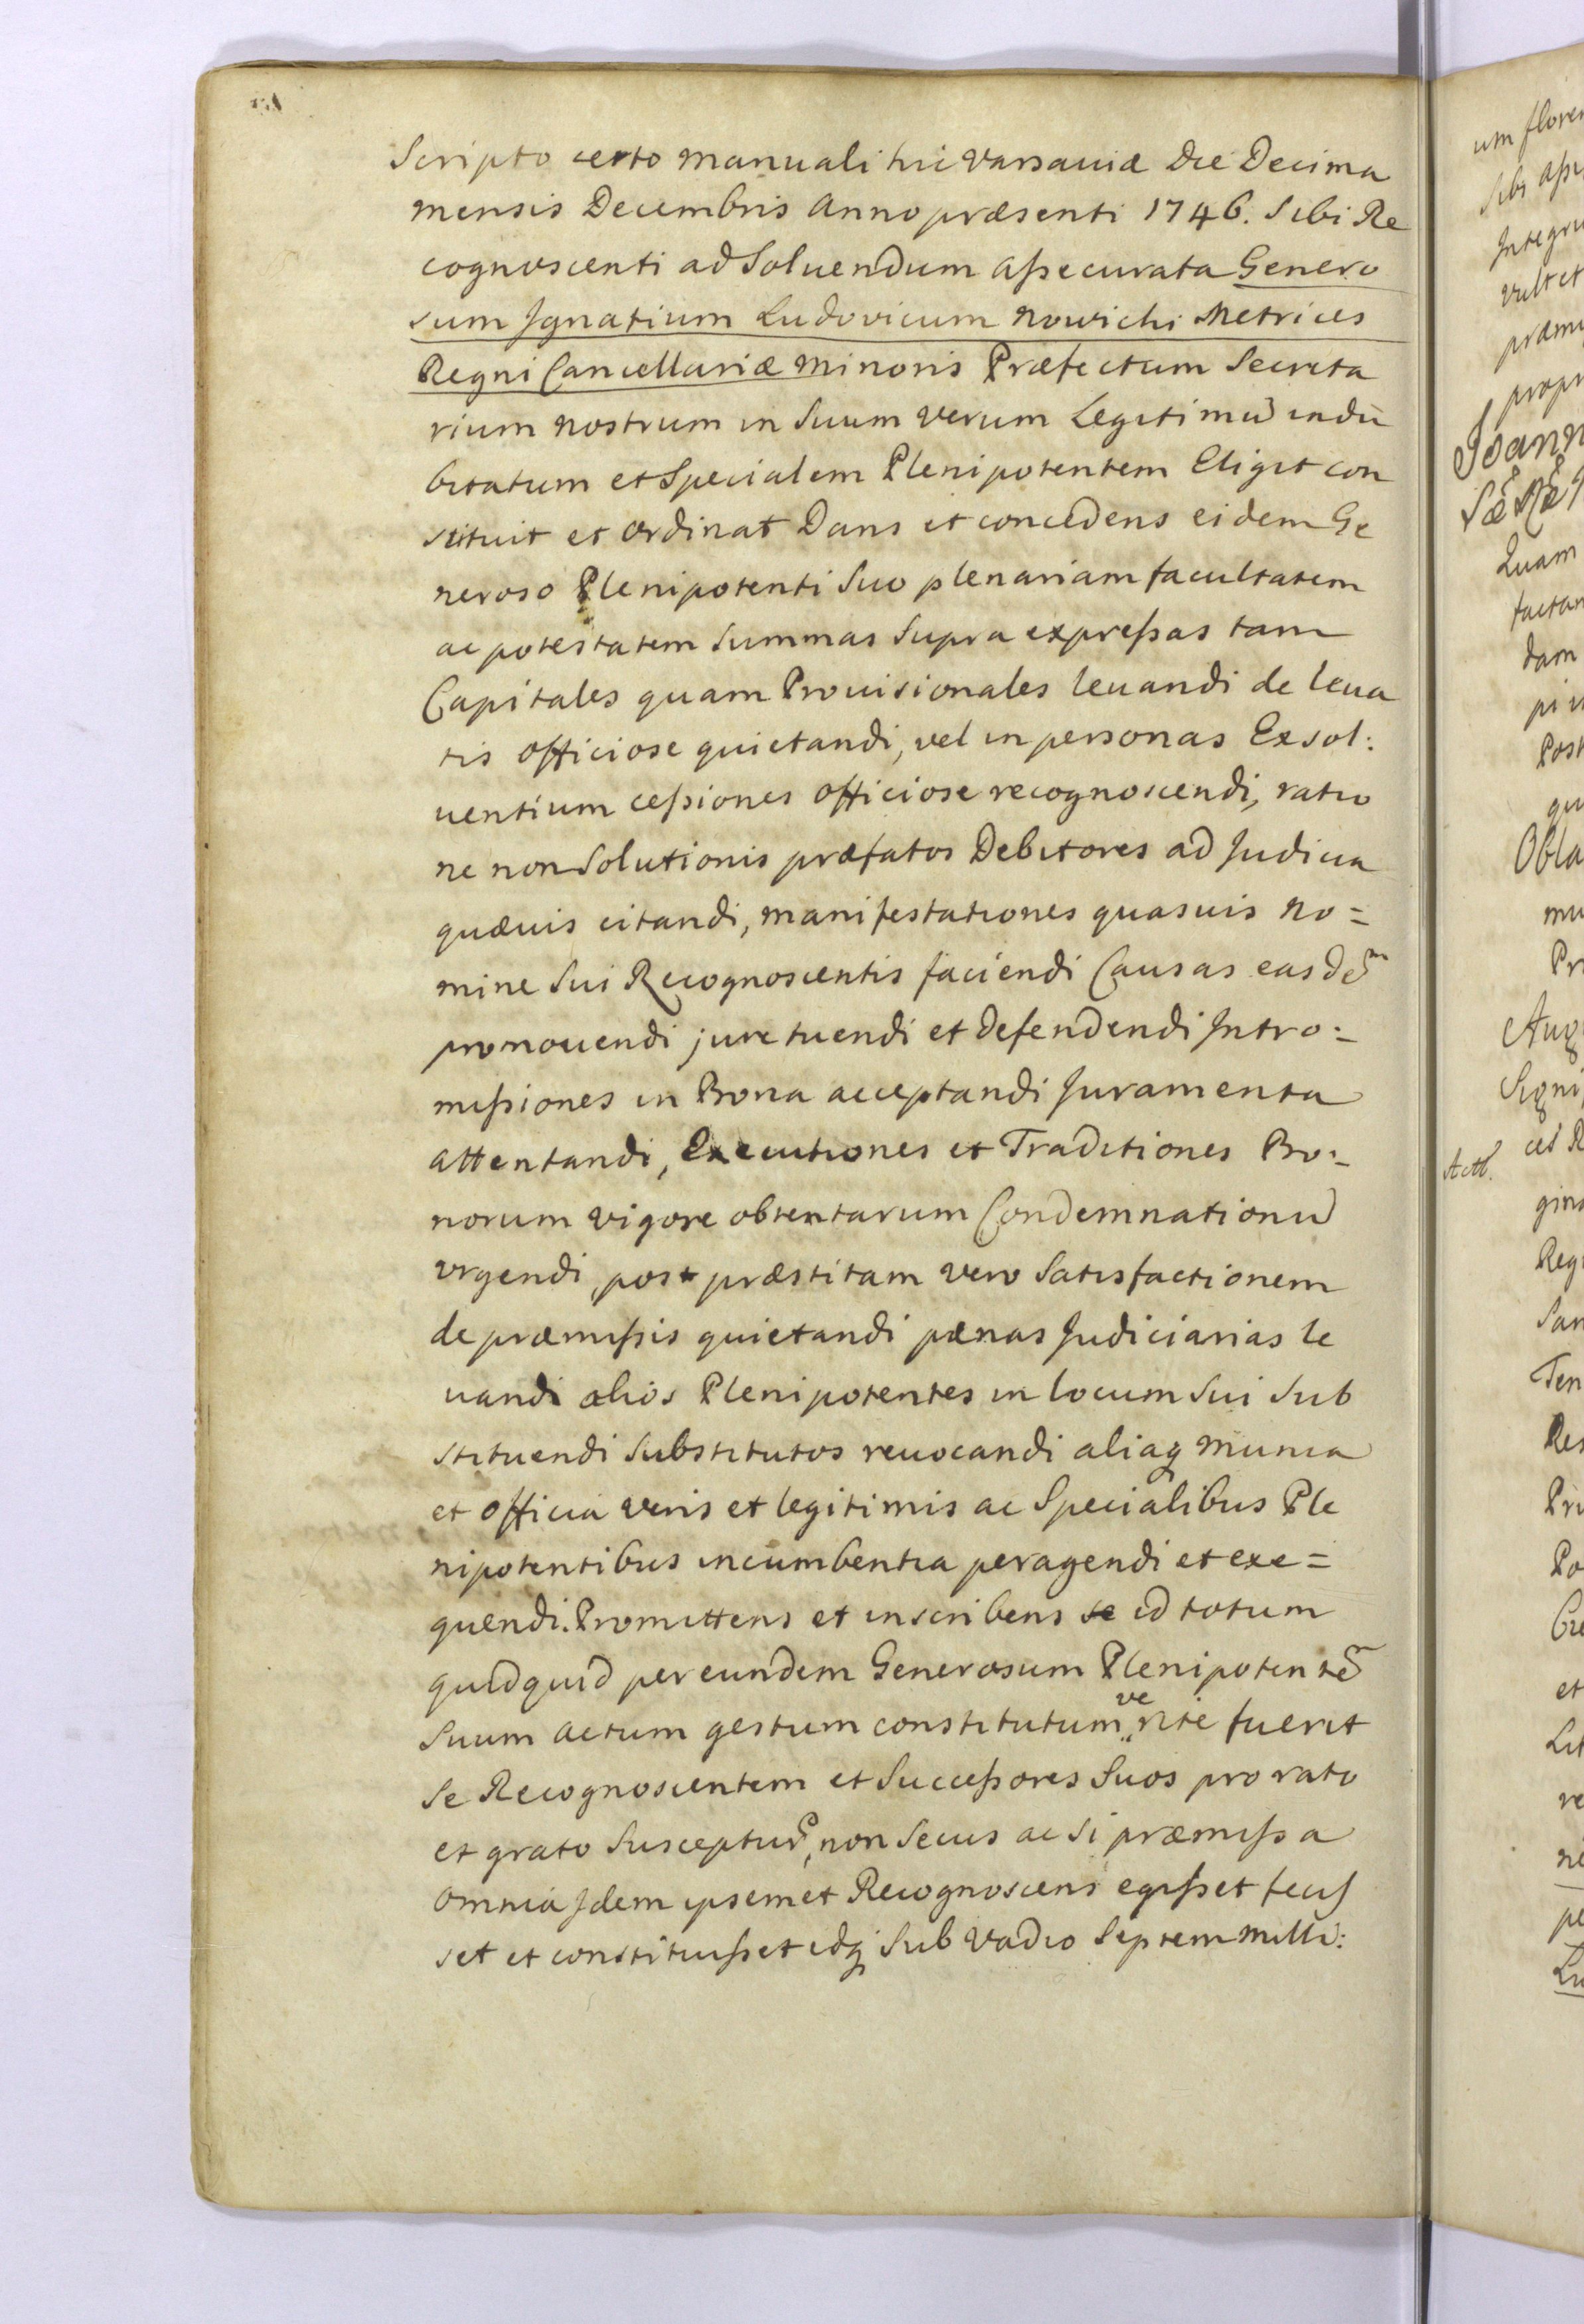 Scripto certo manuali hic Varsaviæ Die Decima
mensis Decembris Anno præsenti 1746. Sibi Re
cognoscenti ad Soluendum aſsecurata Genero
sum Ignatium Ludovicum Nowicki Metrices
Regni Cancellariæ Minoris Præfectum Secreta
rium nostrum in Suum verum Legitimū indu
bitatum et Specialem Plenipotentem Eligit con
stituit et ordinat Dans et concedens eidem Ge
neroso Plenipotenti Suo plenariam facultatem
ac potestatem Summas Supra expreſsas tam
Capitales quam Prouisionales leuandi de leua
tis officiose quietandi, vel in personas Exsol:
uentium ceſsiones officiose recognoscendi, ratio
ne non Solutionis præfatos Debitores ad Judicia
quæuis citandi, manifestationes quasuis no=
mine Sui Recognoscentis faciendi Causas easdē
promouendi jure tuendi et defendendi Intro=
miſsiones in Bona acceptandi Juramenta
attentandi, Executiones et Traditiones Bo=
norum vigore obtentarum Condemnationū
vrgendi, post præstitam vero Satisfactionem
de præmiſsis quietandi pænas Judiciarias le
uandi alios Plenipotentes in locum Sui Sub
stituendi Substitutos reuocandi aliaq munia
et officia veris et legitimis ac Specialibus Ple
nipotentibus incumbentia peragendi et exe=
quendi. Promittens et inscribens se id totum
quidquid per eundem Generosum Plenipotentē
Suum actum gestum constitutum ve rite fuerit
Se Recognoscentem et Succeſsores Suos pro rato
et grato Suscepturū, non Secus ac Si præmiſsa
omnia Idem ipsemet Recognoscens egiſset feciſ
set et constituiſset idq Sub Vadio Septem milli:
um floren
Sibi aſse
Integru
vult et
præmi
propr
Joann
Sæ Ræ
Quam
factam
dam
pi
Post
qu
Obla
mu
Pr
Aug
Signi
Act. ces R
gin
Reg
San
Ten
Res
Pri
Po
Cu
et
Lit
re
ne
pe
Lu